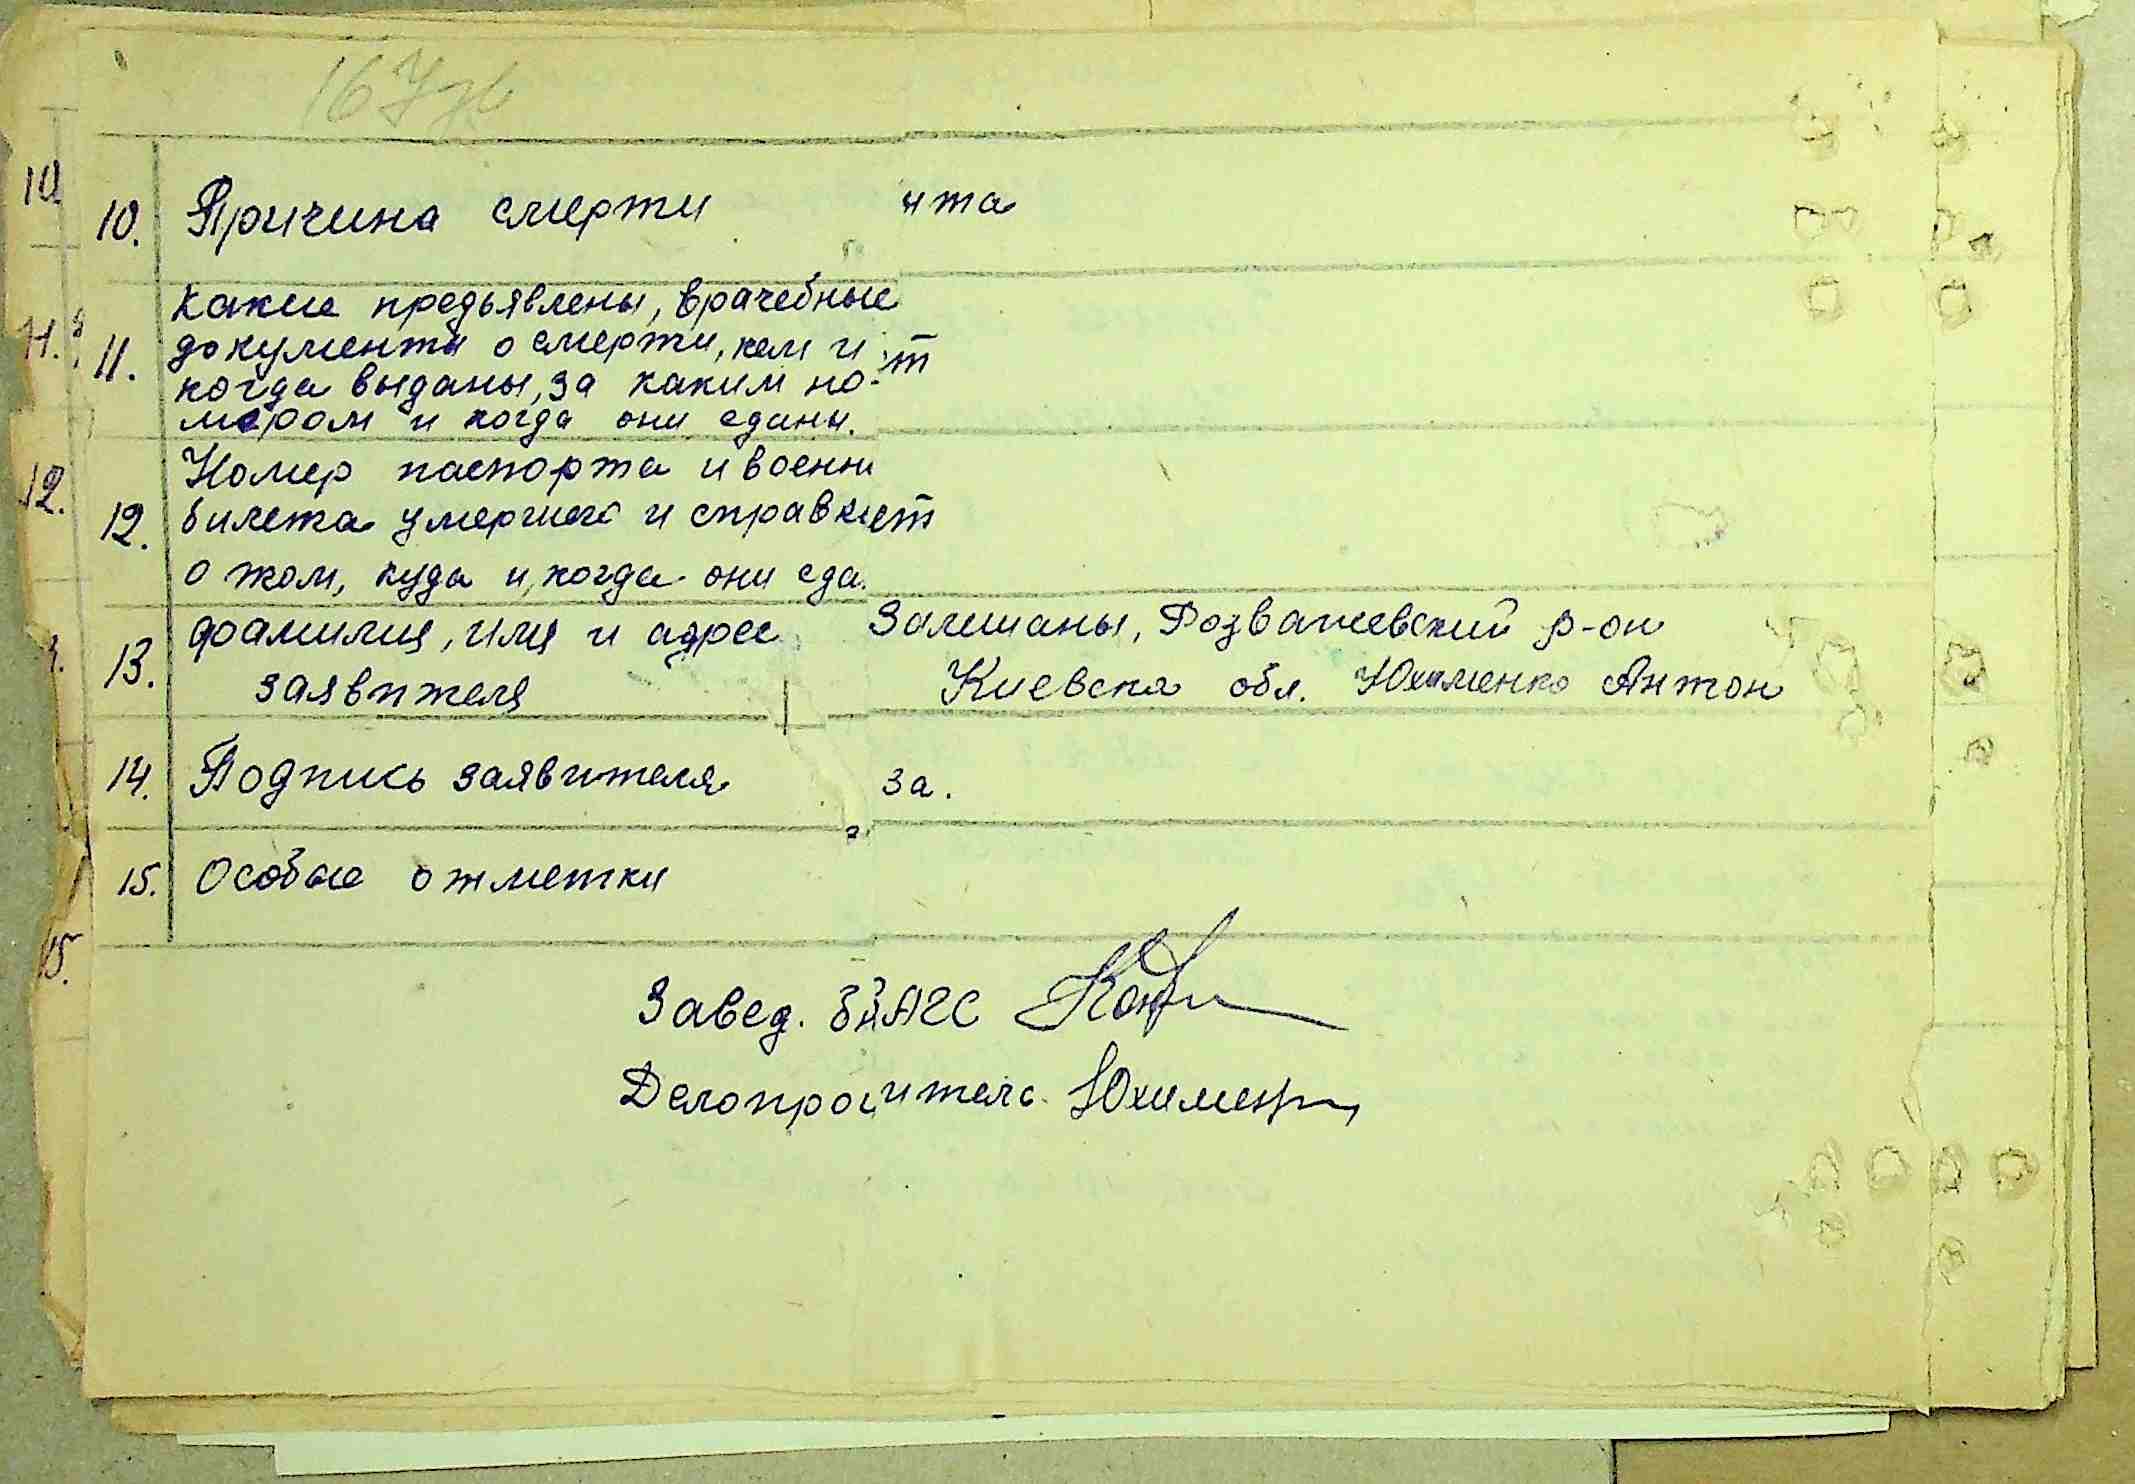 167
10.
10. Причина смерти ита
Какие предьявлены, врачебные
11. документы о смерти, кем и т
когда выданы, за каким но-
мером и когда они сданы.
12.
Номер паспорта и военн
12. билета умершего и справк ет
о том, куда и, когда они сда.
13. фамилия, имя и адрес Залишаны, Розважевский р-он
заявителя Киевска обл. Юхименко Антон
14. Подпись заявителя за.
15. Особые отметки
15.
Завед. ЗАГС
Делопрои ителс. Юхименко